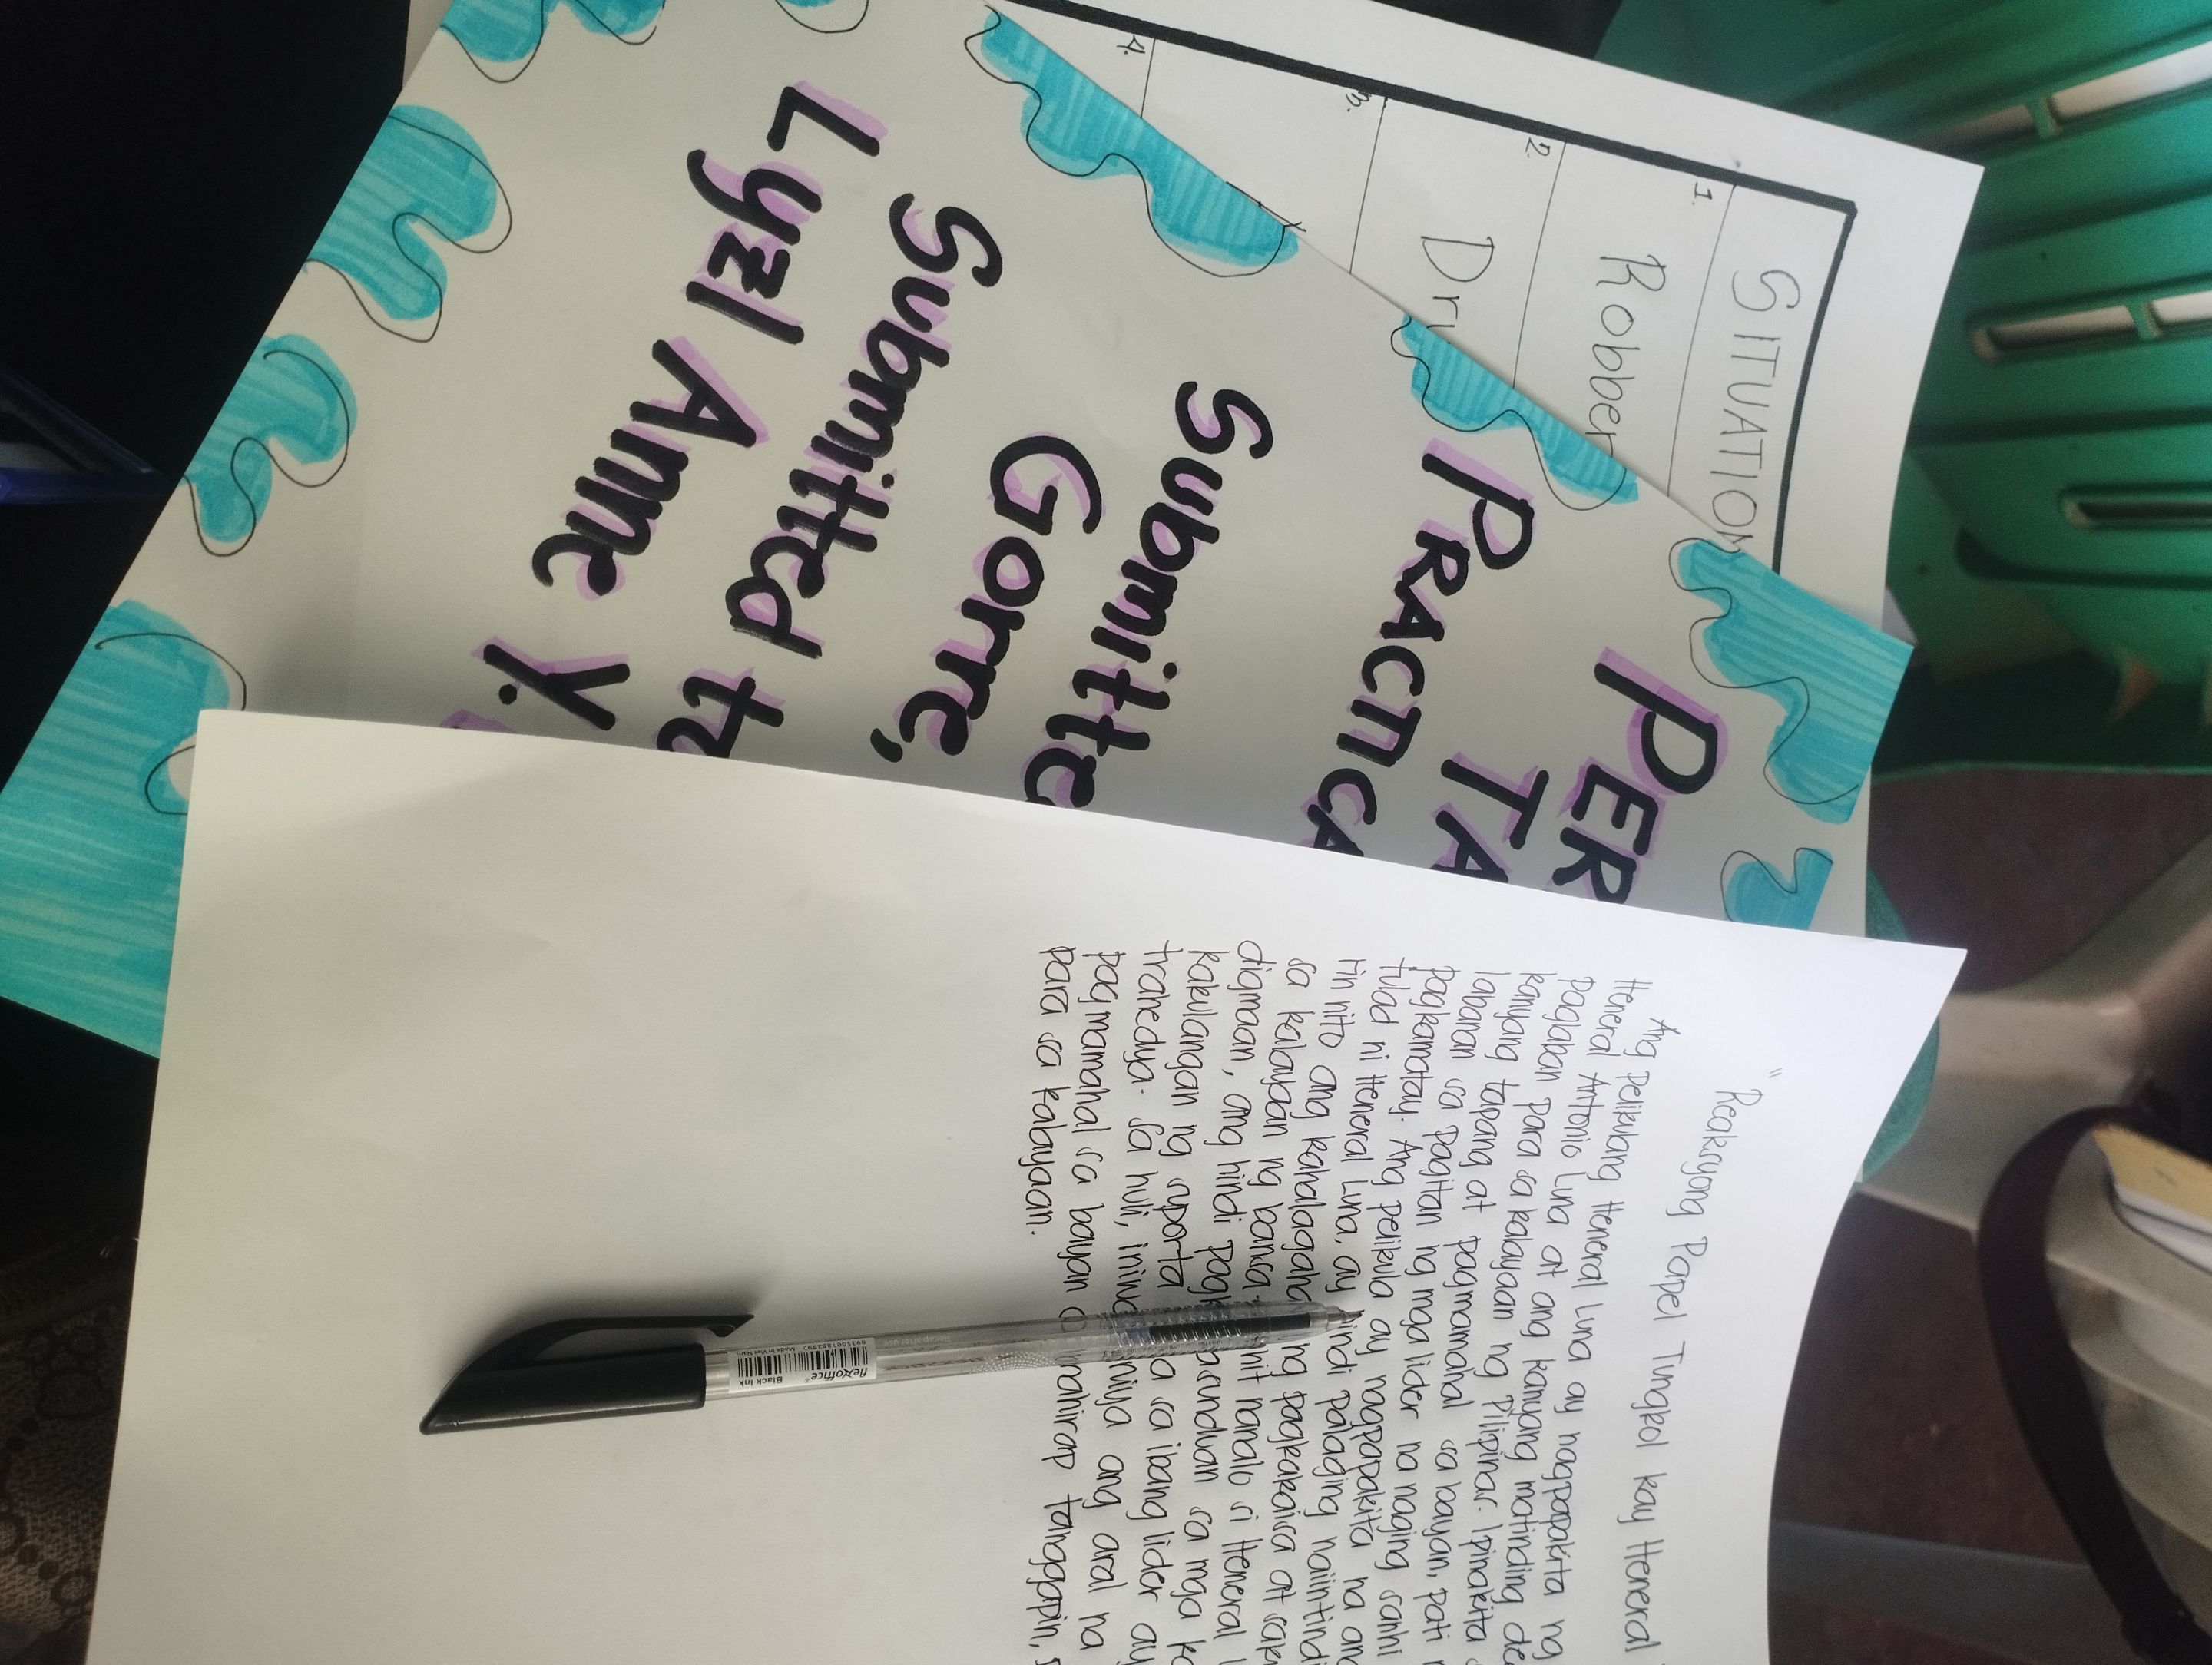 SITUATION
1. Robber
2. Dr
3.
4.
PER
TA
PRACTICA
Submitte
Gorre,
Submitted t
Lyzl Anne Y.
"Reaksyong Papel Tungkol kay Heneral
Ang pelikulang Heneral Luna ay nagpapakita ng
Heneral Antonio Luna at ang kanyang matinding de
paglaban para sa kalayaan ng Pilipinas. Ipinakita
kanyang tapang at pagmamahal sa bayan, pati
labanan sa pagitan ng mga lider na naging sanhi
pagkamatay. Ang pelikula ay nagpapakita na ang
tulad ni Heneral Luna, ay hindi palaging naiintindi
rin nito ang kahalagahang pagkakaisa at sakr
sa kalayaan ng bansa. nanalo si Heneral L
digmaan, ang hindi sa mga ka
kakulangan ng suporta sa ibang lider ay
trahedya. Sa huli, ang aral na
pagmamahal sa bayan mahirap tanggapin, s
para sa kalayaan.
flexoffice
Black Ink
Made in Viet Nam